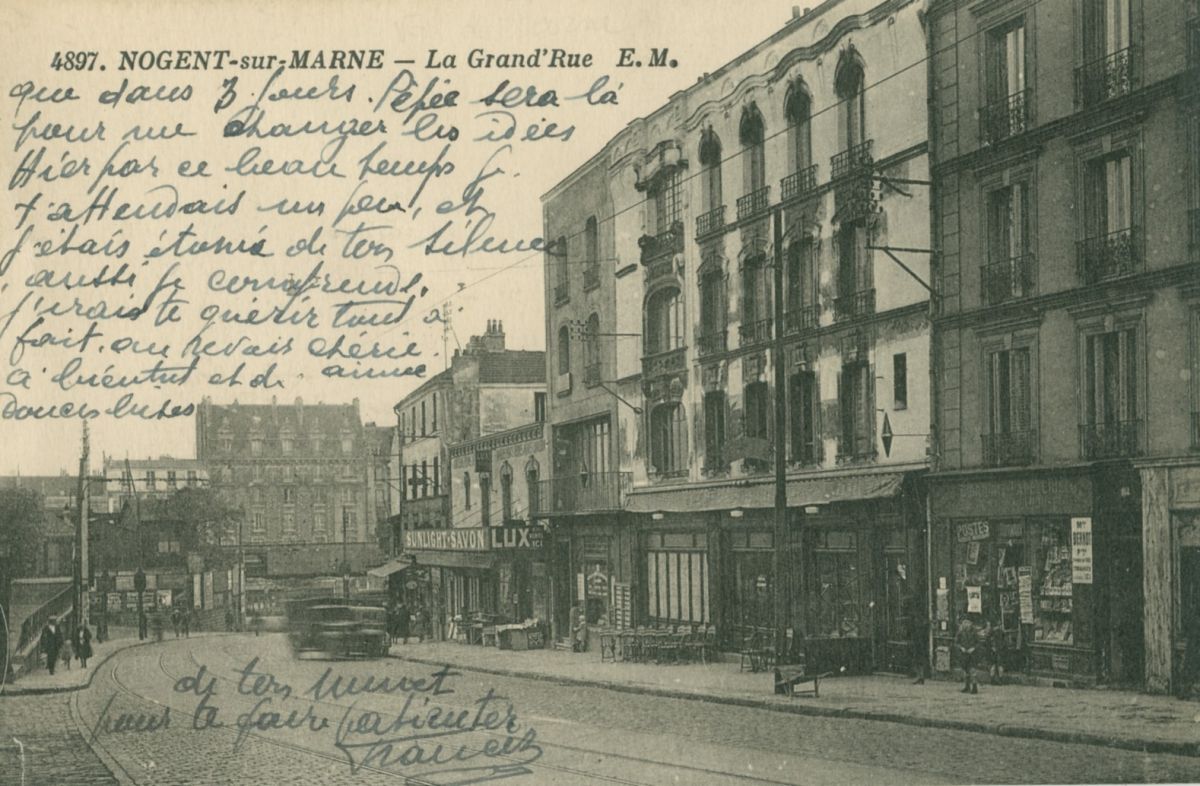 4897. NOGENT-sur-MARNE — La Grand'Rue E.M.
que dans 3 jours. Pépée sera là
pour me changer les idées
Hier par ce beau temps je
t'attendais un peu, et
j'étais étonné de ton silence
aussi je comprends,
j'irais te quérir tout à
fait. au revoir chérie.
à bientôt et de
douces bises
SUNLIGHT-SAVON LUX
POSTES
de ton Minet
pour te faire patienter
Francis